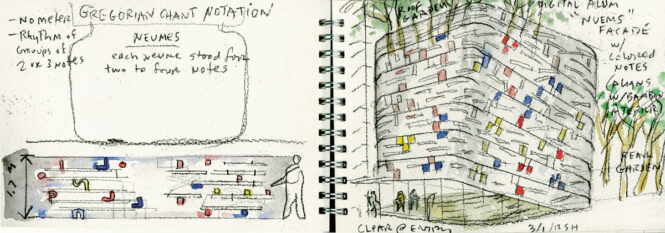 GREGORIAN CHANT NOTATION
- NO METER
- RHYTHM OF
GROUPS OF
2 OR 3 NOTES
NEUMES
each neume stood for
two to four NOTES
ROOF
GARDEN
DIGITAL ALUM
"NUEMS"
FACADE
W/
COLORED
NOTES
W/ BAMBOO
REAR
GARDEN
CLEAR @ ENTRY
3/1/RSH